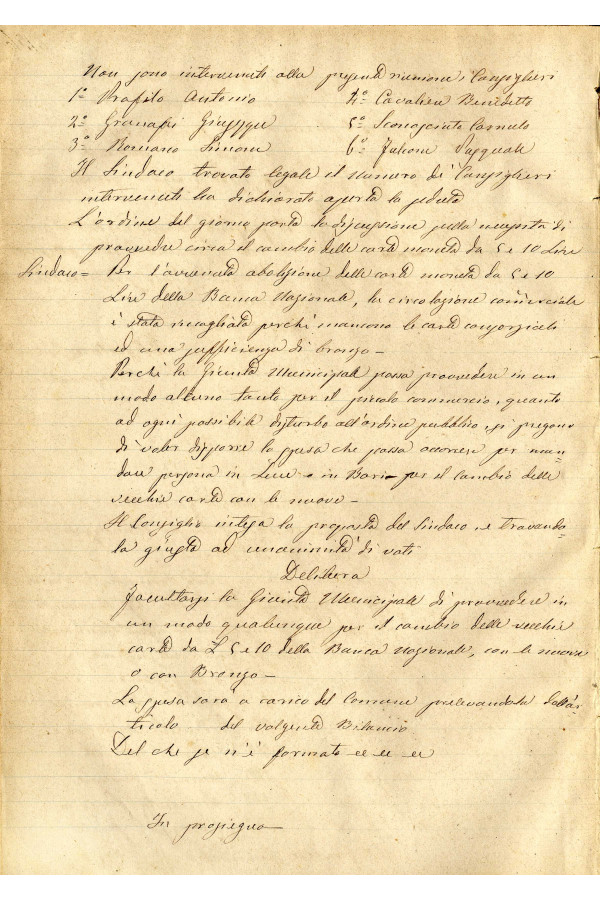 Non sono intervenuti alla presente riunione i Consiglieri
1º Profilo Antonio 4º Cavaliere Benedetto
2º Granafei Giuseppe 5º Sconosciuto Carmelo
3º Romano Simone 6º Falcone Pasquale
Il Sindaco trovato legale il numero de' Consiglieri
intervenuti ha dichiarato aperta la seduta
L'ordine del giorno porta la discussione sulla necessità di
provvedere circa il cambio delle carte moneta da 5 e 10 Lire
Sindaco = Per l'avvenuta abolizione delle carte moneta da 5 e 10
Lire della Banca Nazionale, la circolazione commerciale
è stata incagliata perchè mancono le carte consorziali
ed una sufficienza di bronzo —
Perchè la Giunta Municipale possa provvedere in un
modo alcuno tanto per il piccolo commercio, quanto
ad ogni possibile disturbo all'ordine pubblico, si pregono
di voler disporre la spesa che possa occorrere per man
dare persona in Lecce o in Bari per il cambio delle
vecchie carte con le nuove —
Il Consiglio intesa la proposta del Sindaco, e trovando=
la giusta ad unanimità di voti
Delibera
Facultarsi la Giunta Municipale di provvedere in
un modo qualunque per il cambio delle vecchie
carte da L 5 e 10 della Banca Nazionale, con le nuove
o con Bronzo —
La spesa sarà a carico del Comune prelevandola dall'ar
ticolo del volgente Bilancio
Del che se n'è formato
In prosieguo —